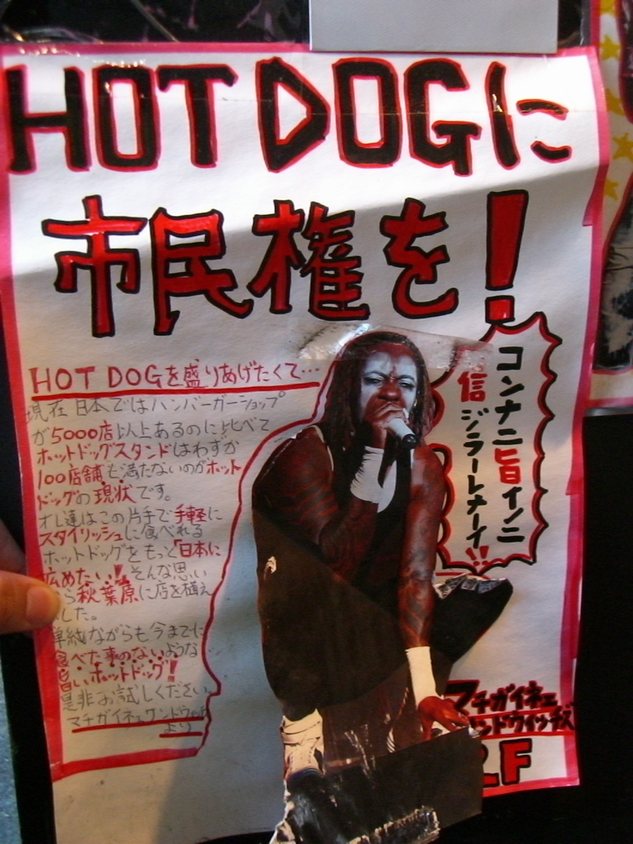 HOT DOGに
市民権を!
HOT DOGを盛りあげたくて…
現在日本ではハンバーガーショップ
が5000店以上あるのに比べて
ホットドッグスタンドはわずか
100店舗も満たないのがホット
ドッグの現状です。
オレ達はこの片手で手軽に
スタイリッシュに食べれる
ホットドッグをもっと「日本に
広めたい!!」そんな思い
ら秋葉原に店を植え
した。
単純ながらも今までに
食べた事のないような
旨いホットドッグ!
是非お試しください。
マチガイネェサンドウィ
より
コンナニ旨イノニ
信ジラーレナーイ!!
マチガイネェ
サンドウィッチハウス
2F